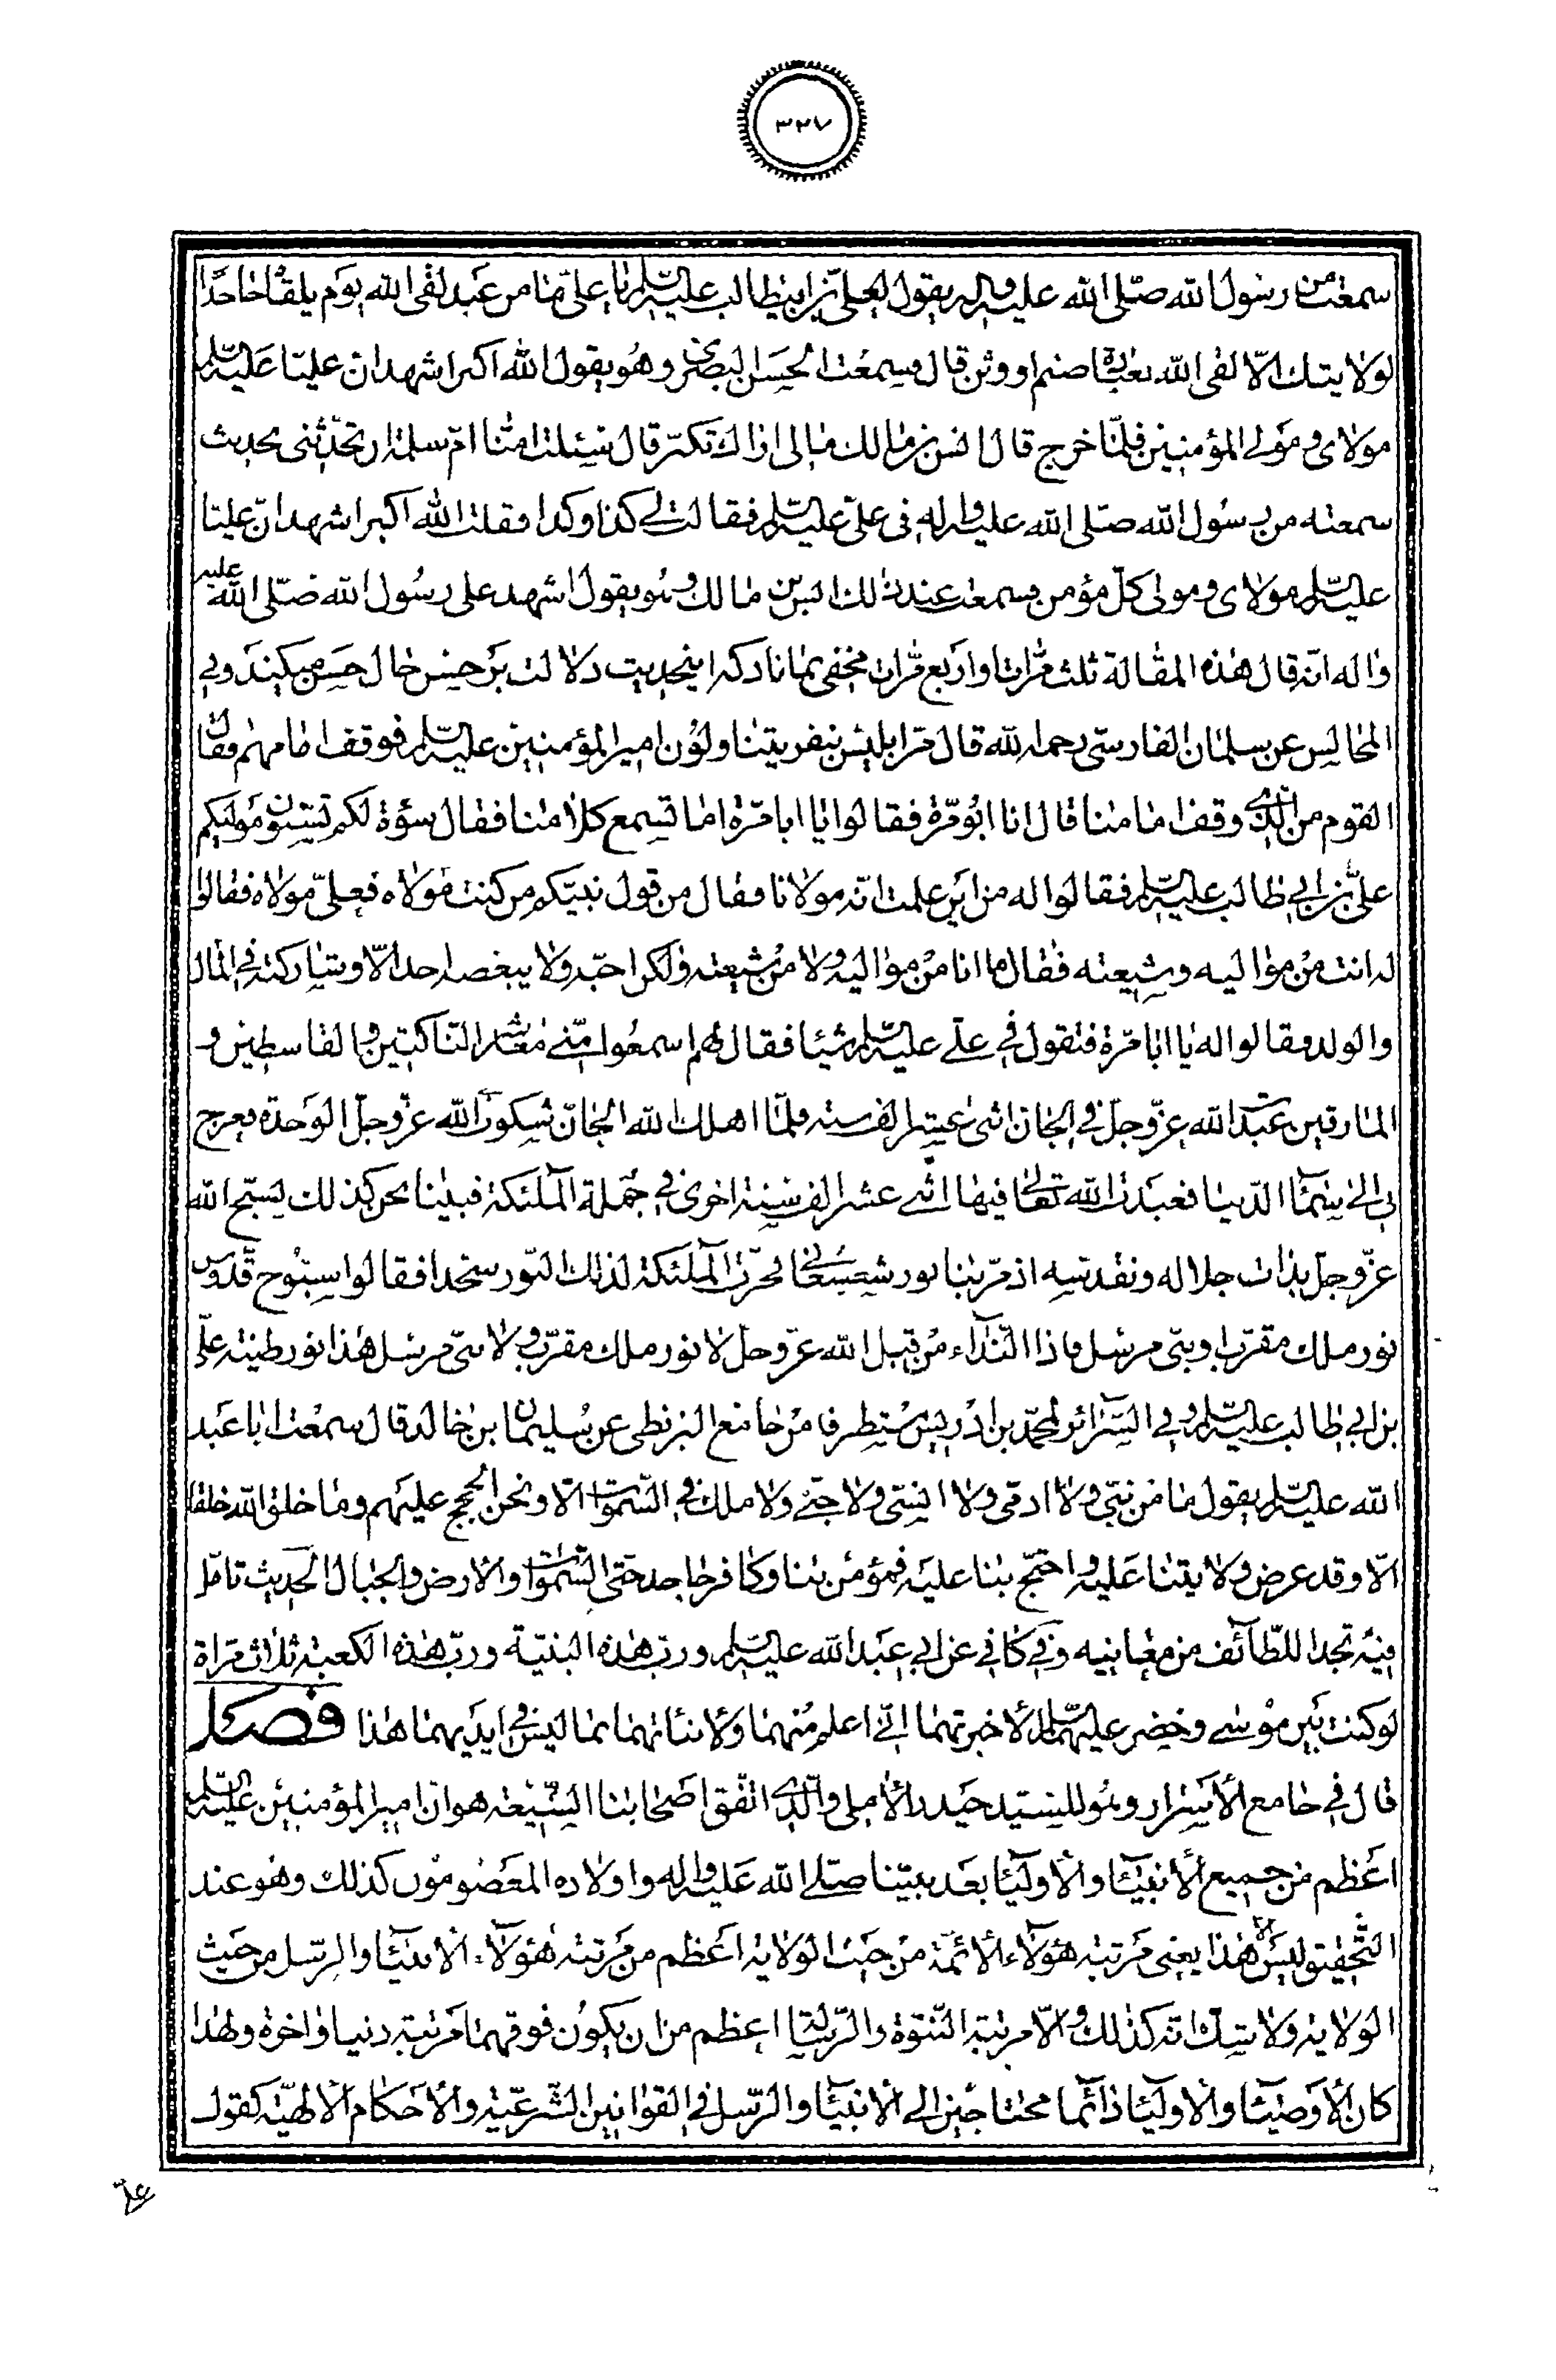 ٣٢٧
سمعته من رسول الله صلّى الله عليه واله يقول لعلىّ بن ابيطالب عليه السّلم يا علىّ ما من عبد لقى الله يوم يلقاه جاحدًا
لولايتك الّا لقى الله بعبادة صنم او وثن قال وسمعت الحسن البصرى وهو يقول الله اكبر اشهد ان عليّا عليه السّلم
مولاى ومولى المؤمنين فلمّا خرج قال انس بن مالك مالى اراك تكبّر قال سئلت امّنا امّ سلمة ان تحدّثنى بحديث
سمعته من رسول الله صلّى الله عليه واله فى علىّ عليه السّلم فقالت لى كذا وكذا فقلت الله اكبر اشهد انّ عليّا
عليه السّلم مولاى ومولى كلّ مؤمن وسمعت عند ذلك انس بن مالك وهو يقول اشهد على رسول الله صلّى الله عليه
واله انّه قال هذه المقالة ثلث مرّات او اربع مرّات مخفى نماناد كه اينحديث دلالت بر حسن حال حسن ميكند وفى
المجالس عن سلمان الفارسىّ رحمه الله قال مرّ ابليس بنفر يتناولون امير المؤمنين عليه السّلم فوقف امامهم فقال
القوم من الّذى وقف امامنا قال انا ابو مرّة فقالوا يا ابا مرّة اما تسمع كلامنا فقال سوءة لكم تسبّون موليكم
علىّ بن ابى طالب عليه السّلم فقالوا له من اين علمت انّه مولانا فقال من قول نبيّكم من كنت مولاه فعلىّ مولاه فقالوا
له انت من مواليه وشيعته فقال ما انا من مواليه ولا من شيعته ولكن احبّه ولا يبغضه احد الّا وشاركته فى المال
والولد فقالوا له يا ابا مرّة فتقول فى علىّ عليه السّلم شيئا فقال لهم اسمعوا منّى معاشر النّاكثين والقاسطين و
المارقين عبدت الله عزّ وجلّ فى الجان اثنى عشر الف سنه فلمّا اهلك الله الجانّ شكوت الى الله عزّ وجلّ الوحدة فعرج
بى الى سماء الدّنيا فعبدت الله تعالى فيها اثنى عشر الف سنة اخرى فى جملة الملئكة فبينا نحن كذلك نسبّح الله
عزّ وجلّ بذات جلاله ونقدّسه اذ مرّ بنا نور شعشعانى فخرّت الملئكة لذلك النّور سجّدا فقالوا سبّوح قدّوس
نور ملك مقرّب او نبىّ مرسل فاذا النّداء من قبل الله عزّ وجلّ لا نور ملك مقرّب ولا نبىّ مرسل هذا نور طينة علىّ
بن ابى طالب عليه السّلم وفى السّرائر لمحمّد بن ادريس مستطرفا من جامع البزنطى عن سليمان بن خالد قال سمعت ابا عبد
الله عليه السّلم يقول ما من نبىّ ولا ادمى ولا انسىّ ولا جنّى ولا ملك فى السّموات الّا ونحن الحجج عليهم وما خلق الله خلقا
الّا وقد عرض ولايتنا عليه واحتجّ بنا عليه فمؤمن بنا وكافر جاحد حتّى السّموات والارض والجبال الحديث تامّل
فيه تجد اللطّائف من معانيه وفى كافى عن ابى عبد الله عليه السّلم ورب هذه البنيّة وربّ هذه الكعبة ثلاث مرّاة
لو كنت بين موسى وخضر عليهما السّلم لأخبرتهما انّى اعلم منهما ولأنبأتهما بما ليس فى ايديهما هذا فصل
قال فى جامع الأسرار وهو للسيّد حيدر الأملى والّذى اتّفق اصحابنا الشّيعة هو انّ امير المؤمنين عليه السّلم
اعظم من جميع الأنبياء والأولياء بعد نبيّنا صلّى الله عليه واله واولاده المعصومون كذلك وهو عند
التّحقيق ليس الّا هذا يعنى مرتبة هؤلاء الأئمّة من حيث الولاية اعظم من مرتبة هؤلاء الأنبياء والرّسل من حيث
الولاية ولا شكّ انّه كذلك والّا مرتبة النّبوّة والرّسالة اعظم من ان يكون فوقهما مرتبة دنيا واخرة ولهذا
كان الأوصياء والأولياء دائما محتاجين الى الأنبياء والرّسل فى القوانين الشّرعيّة والأحكام الألهيّة كقول
علىّ